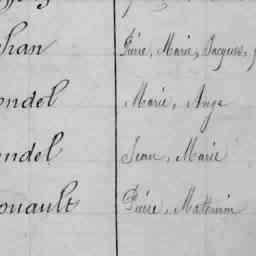 han Pierre, Marie, Jacques,
ondel Marie, Ange
ndel Jean, Marie
ouault Pierre, Mathurin